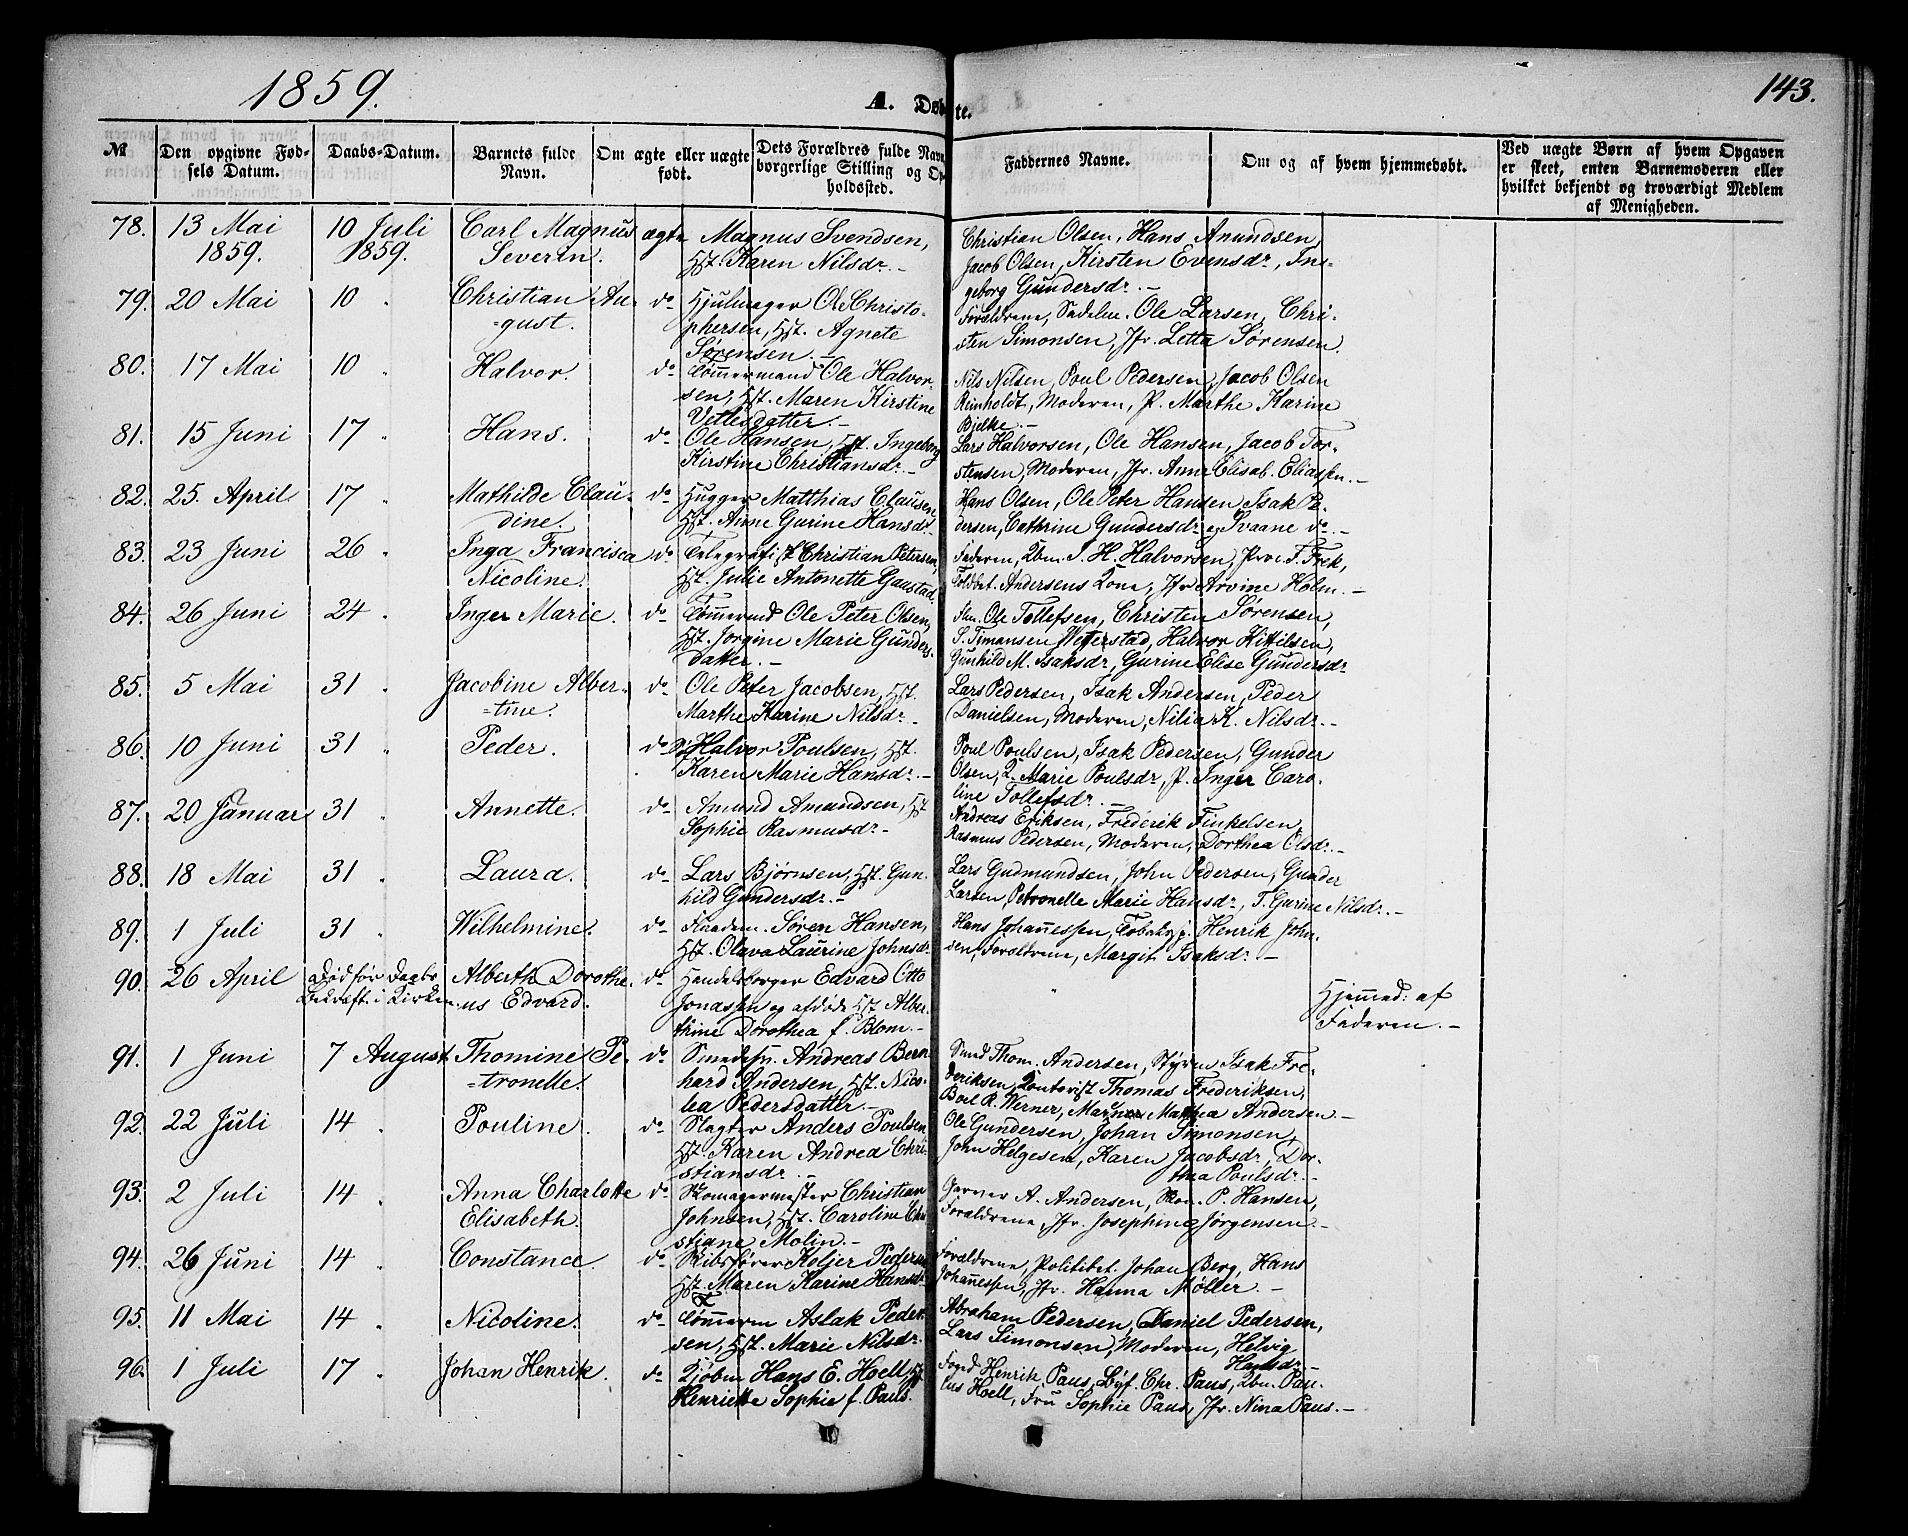 1859.
A. Døbte.
143.
№
Den opgivne Fødsels Datum.
Daabs-Datum.
Barnets fulde Navn.
Om ægte eller uægte født.
Dets Forældres fulde Navn, borgerlige Stilling og Opholdssted.
Faddernes Navne.
Om og af hvem hjemmedøbt.
Ved uægte Børn af hvem Opgaven er skeet, enten Barnemoderen eller hvilket bekjendt og troværdigt Medlem af Menigheden.
78. 13 Mai 1859. 10 Juli 1859. Carl Magnus Severin. ægte Magnus Svendsen, Hst. Karen Nilsdr. –
Christian Olsen, Hans Amundsen, Jacob Olsen, Kirsten Evensdr, Ingeborg Gundersdr. –
79. 20 Mai 10 " Christian August. do Hjulmager Ole Christophersen, Hst. Agnete Sørensen. –
Forældrene, Sadelm. Ole Larsen, Christen Simonsen, Jfr. Letta Sørensen.
80. 17 Mai 10 " Halvor. do Tømmermand Ole Halvorsen, Hst. Maren Kirstine Vetlesdatter. –
Nils Nilsen, Poul Pedersen, Jacob Olsen Reinholdt, Moderen, P. Marthe Karine Bjelke. –
81. 15 Juni 17 " Hans. do Ole Hansen, Hst. Ingeborg Kirstine Christiansdr. –
Lars Halvorsen, Ole Hansen, Jacob Torstensen, Moderen, Jfr. Anne Elisab. Eliassen. –
82. 25. April 17 " Mathilde Claudine. do Hugger Matthias Clausen, Hst. Anne Gurine Hansdr. –
Hans Olsen, Ole Peter Hansen, Isak Pedersen, Cathrine Gundersdr og Svaane do. –
83. 23 Juni 26 " Inga Francisca Nicoline. do Telegrafist Christian Petersen, Hst. Julie Antonette Gaustad.
Faderen, Kbm. J. H. Halvorsen, Prov. T. Frek, Toldbet. Andersens Kone, Jfr Arvine Holm. –
84. 26 Juni 24 " Inger Marie. do Tømmermd Ole Peter Olsen, Hst. Jorgine Marie Gundersdatter. –
Stm. Ole Tollefsen, Christen Sørensen, S. Timansen Wetterstad, Halvor Kittilsen, Gunhild M. Isaksdr, Gurine Elise Gundersdr
85. 5 Mai 31 " Jacobine Albertine. do Ole Peter Jacobsen, Hst. Marthe Karine Nilsdr. –
Lars Pedersen, Isak Andersen, Peder Danielsen, Moderen, Nilia K. Nilsdr. –
86. 10 Juni 31 " Peder. do Halvor Poulsen, Hst. Karen Marie Hansdr. –
Poul Poulsen, Isak Pedersen, Gunder Olsen, K. Marie Poulsdr, P. Inger Caroline Tollefsdr. –
87. 20 Januar 31 " Annette. do Amund Amundsen, Hst Sophie Rasmusdr –
Andreas Eriksen, Frederik Finkelsen, Rasmus Pedersen, Moderen, Dorthea Olsdr. –
88. 18 Mai 31 " Laura. do Lars Bjørnsen, Hst. Gunhild Gundersdr. –
Lars Gudmundsen, John Pedersen, Gunder Larsen, Petronelle Marie Hansdr, T. Gurine Nilsdr. –
89. 1 Juli 31 " Wilhelmine. do Søren Hansen, Hst. Olava Laurine Johnsdr. –
Hans Johannessen, Henrik Johnsen, Forældrene, Margit Isaksdr. –
90. 26 April Død før Daabs Bekræft. i Kirken. Alberth Dorotheus Edvard. do Handelsborger Edvard Otto Jonassen og afdøde Hst Alberthine Dorothea f. Blom. –
Hjemmed: af Faderen. –
91. 1 Juni 7 August Thomine Petronelle. do Smedesv. Andreas Bernhard Andersen, Hst. Nicolea Pedersdatter. –
Smed Thom. Andersen, Styrm Isak Frederiksen, Kontorist Thomas Frederiksen, Boel R. Werner, Mathea Andersen –
92. 22 Juli 14 " Pouline. do Slagter Anders Poulsen Hst. Karen Andrea Christiansdr. –
Ole Gundersen, Johan Simonsen, John Helgesen, Karen Jacobsdr, Dorthea Poulsdr. –
93. 2 Juli 14 " Anna Charlotte Elisabeth. do Skomagermester Christian Johnsen, Hst. Caroline Christiane Molin. –
Garver A. Andersen, Skom. P. Hansen, Forældrene, Jfr. Josephine Jørgensen –
94. 26 Juni 14 " Constance. do Skibsfører Koljer Pedersen Hst. Maren Karine Hansdr
Forældrene, Politibet. Johan Berg, Hans Johannessen, Jfr. Hanna Møller. –
95. 11 Mai 14 " Nicoline. do Tømmerm Aslak Pedersen, Hst. Marie Nilsdr.
Abraham Pedersen, Daniel Pedersen, Lars Simonsen, Moderen, Helvig Hansdr. –
96. 1 Juli 17 " Johan Henrik. do Kjøbm Hans E. Hoell, Hst Henriette Sophie f. Paus.
Foged Henrik Paus, Byf. Chr. Paus, Kbm. Paulus Hoell, Fru Sophie Paus, Jfr. Nina Paus. –